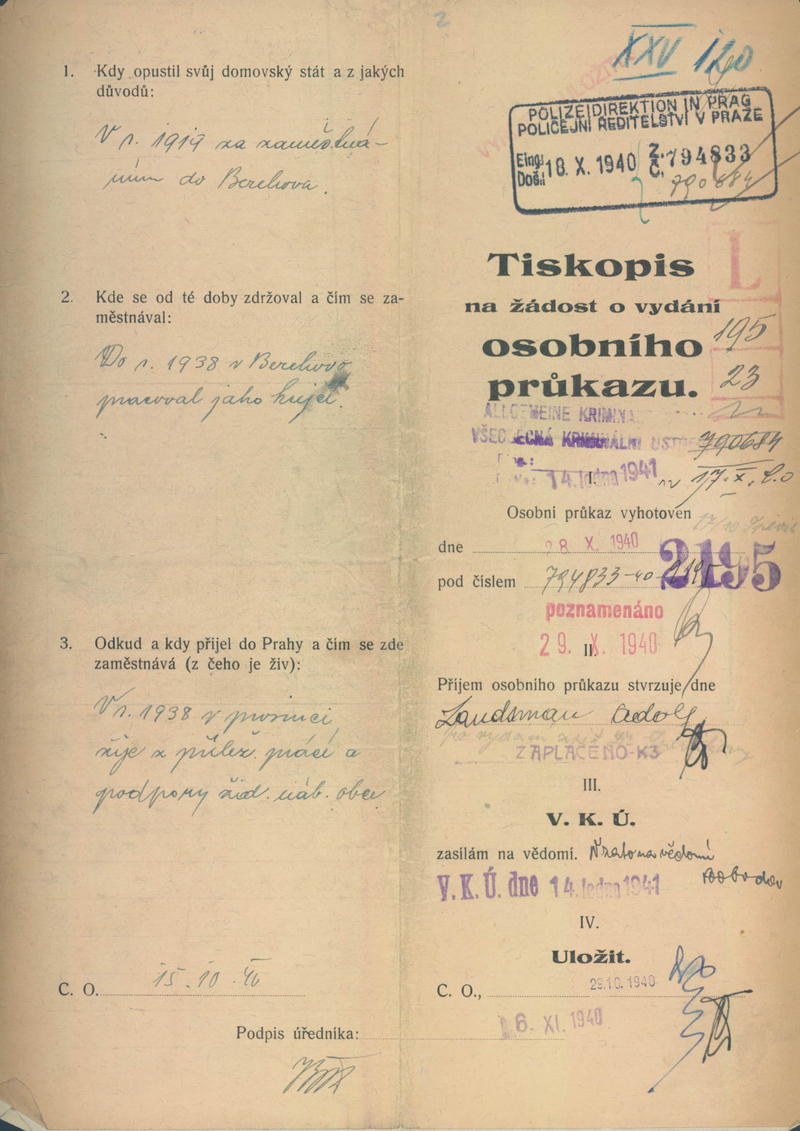 1. Kdy opustil svůj domovský stát a z jakých
důvodů:
V r. 1919 za zaměstná-
ním do Berehova.
2. Kde se od té doby zdržoval a čím se za-
městnával:
Do r. 1938 v Berehovo
pracoval jako krejčí.
3. Odkud a kdy přijel do Prahy a čím se zde
zaměstnává (z čeho je živ):
V r. 1938 v prosinci,
žije z přílež. prácí a
podpory žid. náb. obce
C. O. 15.10.40
Podpis úředníka:
XXV 120
POLIZEIDIREKTION IN PRAG
POLICEJNÍ ŘEDITELSTVÍ V PRAZE
Eing.: Došl. 18. X. 1940 Z. Č. 794833
790684
Tiskopis
L
na žádost o vydání
195
osobního
23
průkazu.
ALLGEMEINE KRIMIN
VŠEOBECNÁ KRIMINÁLNÍ ÚSTŘ
790684
14. ledna 1941
I.
17. X. 40
Osobní průkaz vyhotoven
dne 28. X. 1940
2195
pod číslem 794833-40
poznamenáno
29. X. 1940
II.
Příjem osobního průkazu stvrzuje dne
Landsman Adolf
ZAPLACENO-K3
III.
V. K. Ú.
zasílám na vědomí. Vzato na vědomí
V. K. Ú. dne 14. ledna 1941
IV.
Uložit.
C. O., 29.10.1940
6. XI. 1940